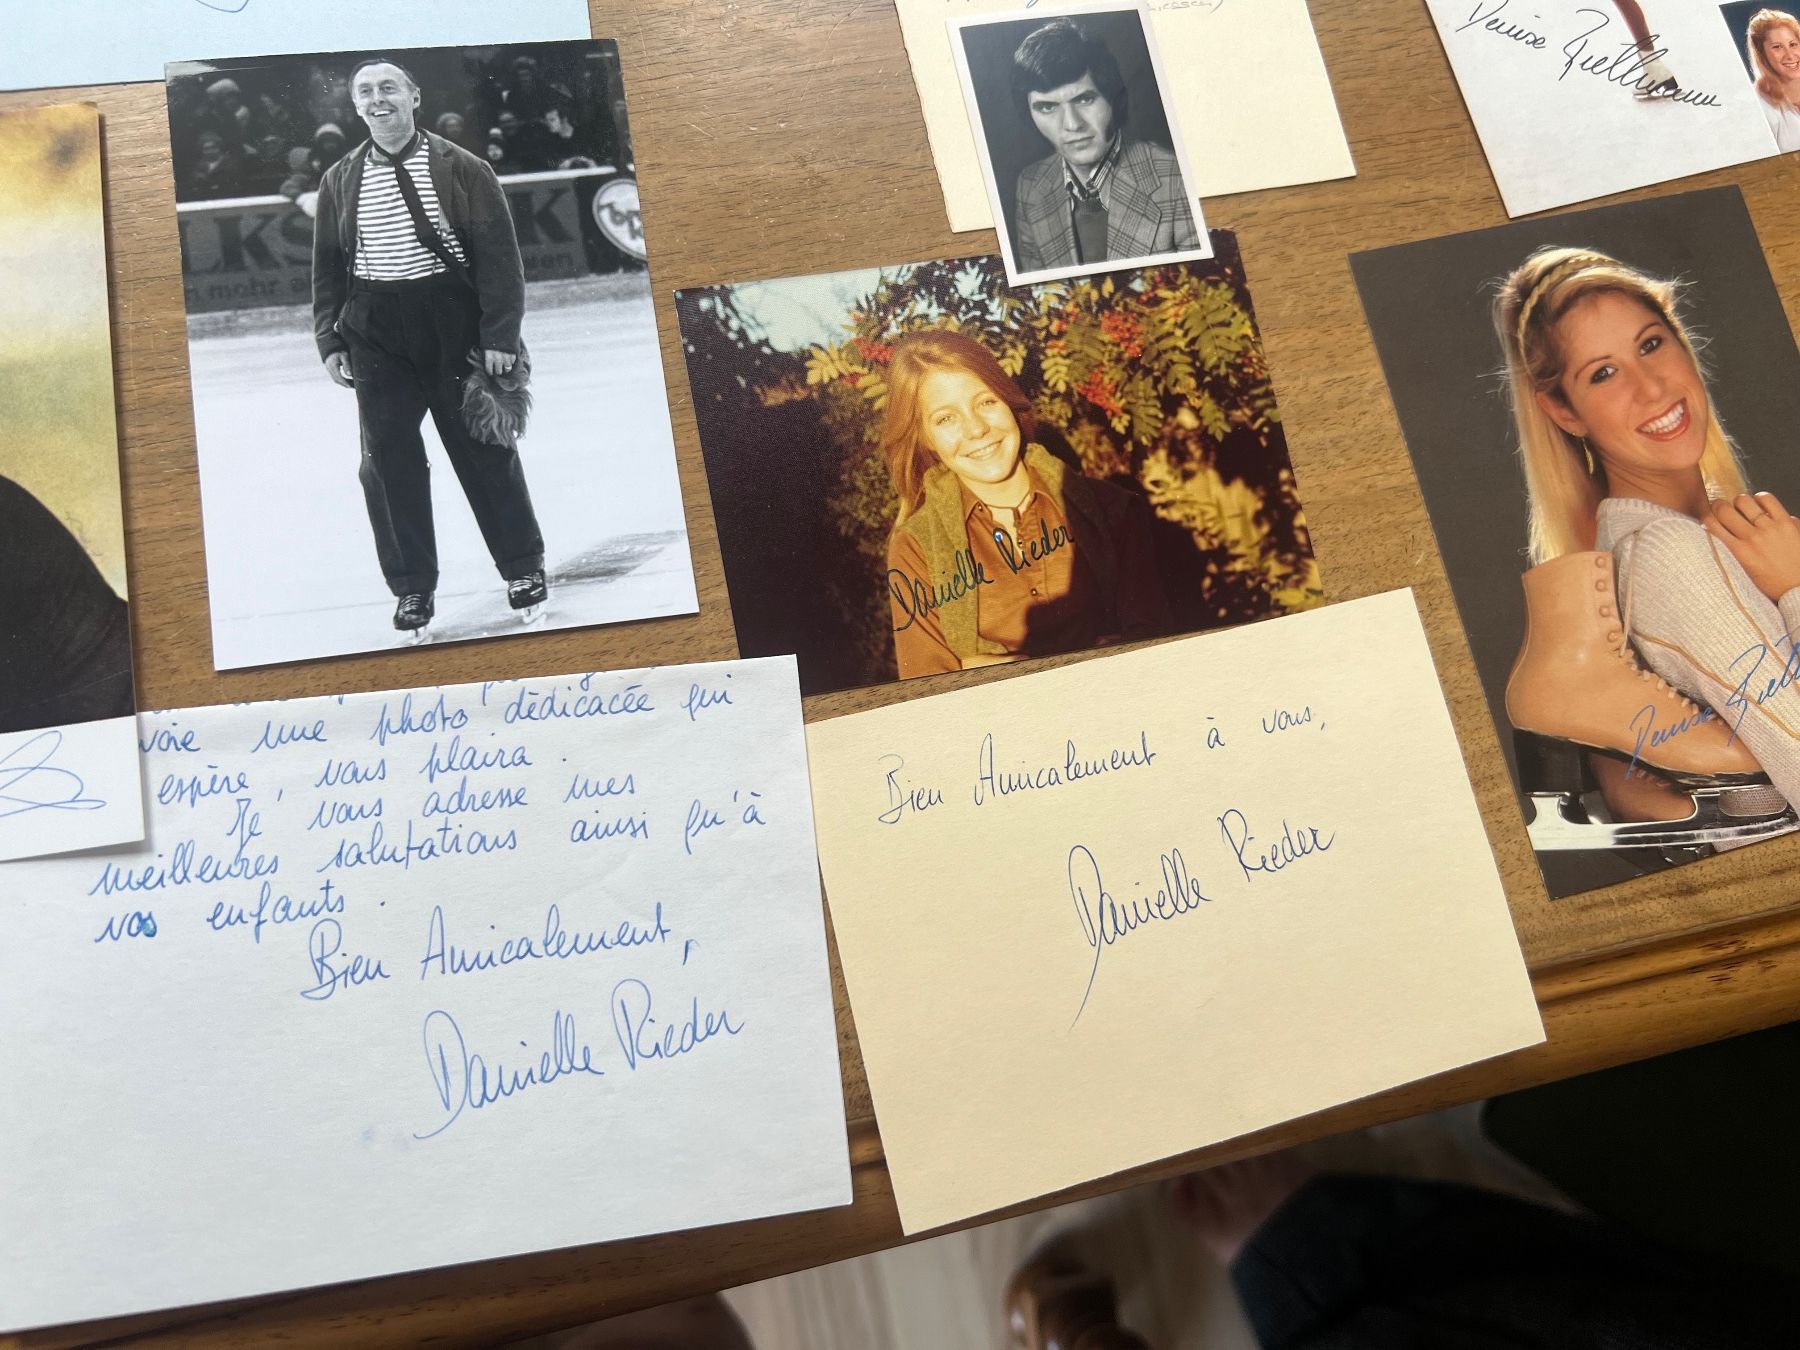 Denise Biellmann
LKS
K
n mehr a
sen
Danielle Rieder
Denise Biel
voie une photo dédicacée qui
espère, vous plaira.
Je vous adresse mes
meilleures salutations ainsi qu'à
vos enfants.
Bien Amicalement,
Danielle Rieder
Bien Amicalement à vous,
Danielle Rieder